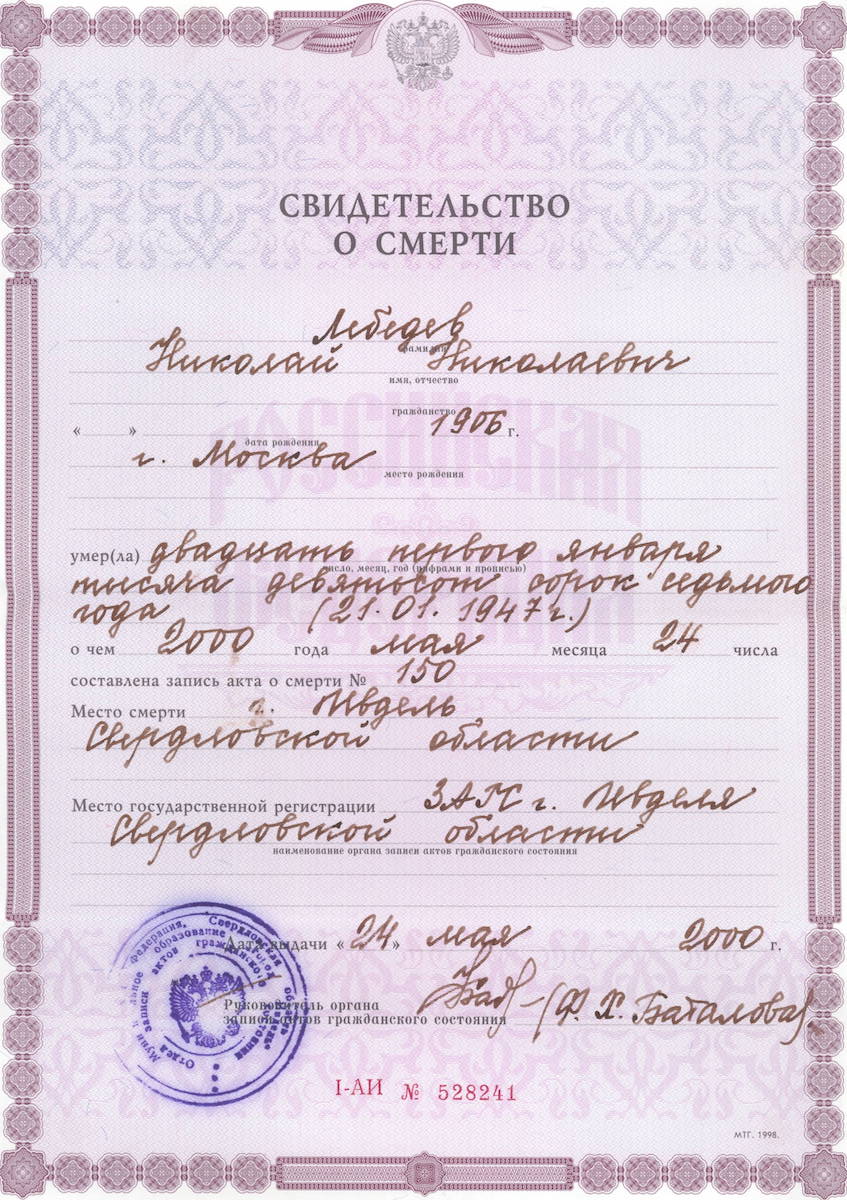 СВИДЕТЕЛЬСТВО
О СМЕРТИ
Лебедев
фамилия
Николай Николаевич
имя, отчество
гражданство
« » 1906 г.
дата рождения
г. Москва
место рождения
РОССИЙСКАЯ
ФЕДЕРАЦИЯ
умер(ла) двадцать первого января
число, месяц, год (цифрами и прописью)
тысяча девятьсот сорок седьмого
года (21.01.1947 г.)
о чем 2000 года мая месяца 24 числа
составлена запись акта о смерти № 150
Место смерти г. Ивдель
Свердловской области
Место государственной регистрации ЗАГС г. Ивделя
Свердловской области
наименование органа записи актов гражданского состояния
Дата выдачи «24» мая 2000 г.
Руководитель органа
записи актов гражданского состояния (Ф. Х. Баталова)
I-АИ № 528241
МТГ. 1998.
Федерация, Свердловская область
образование город
Отдел записи актов гражданского состояния